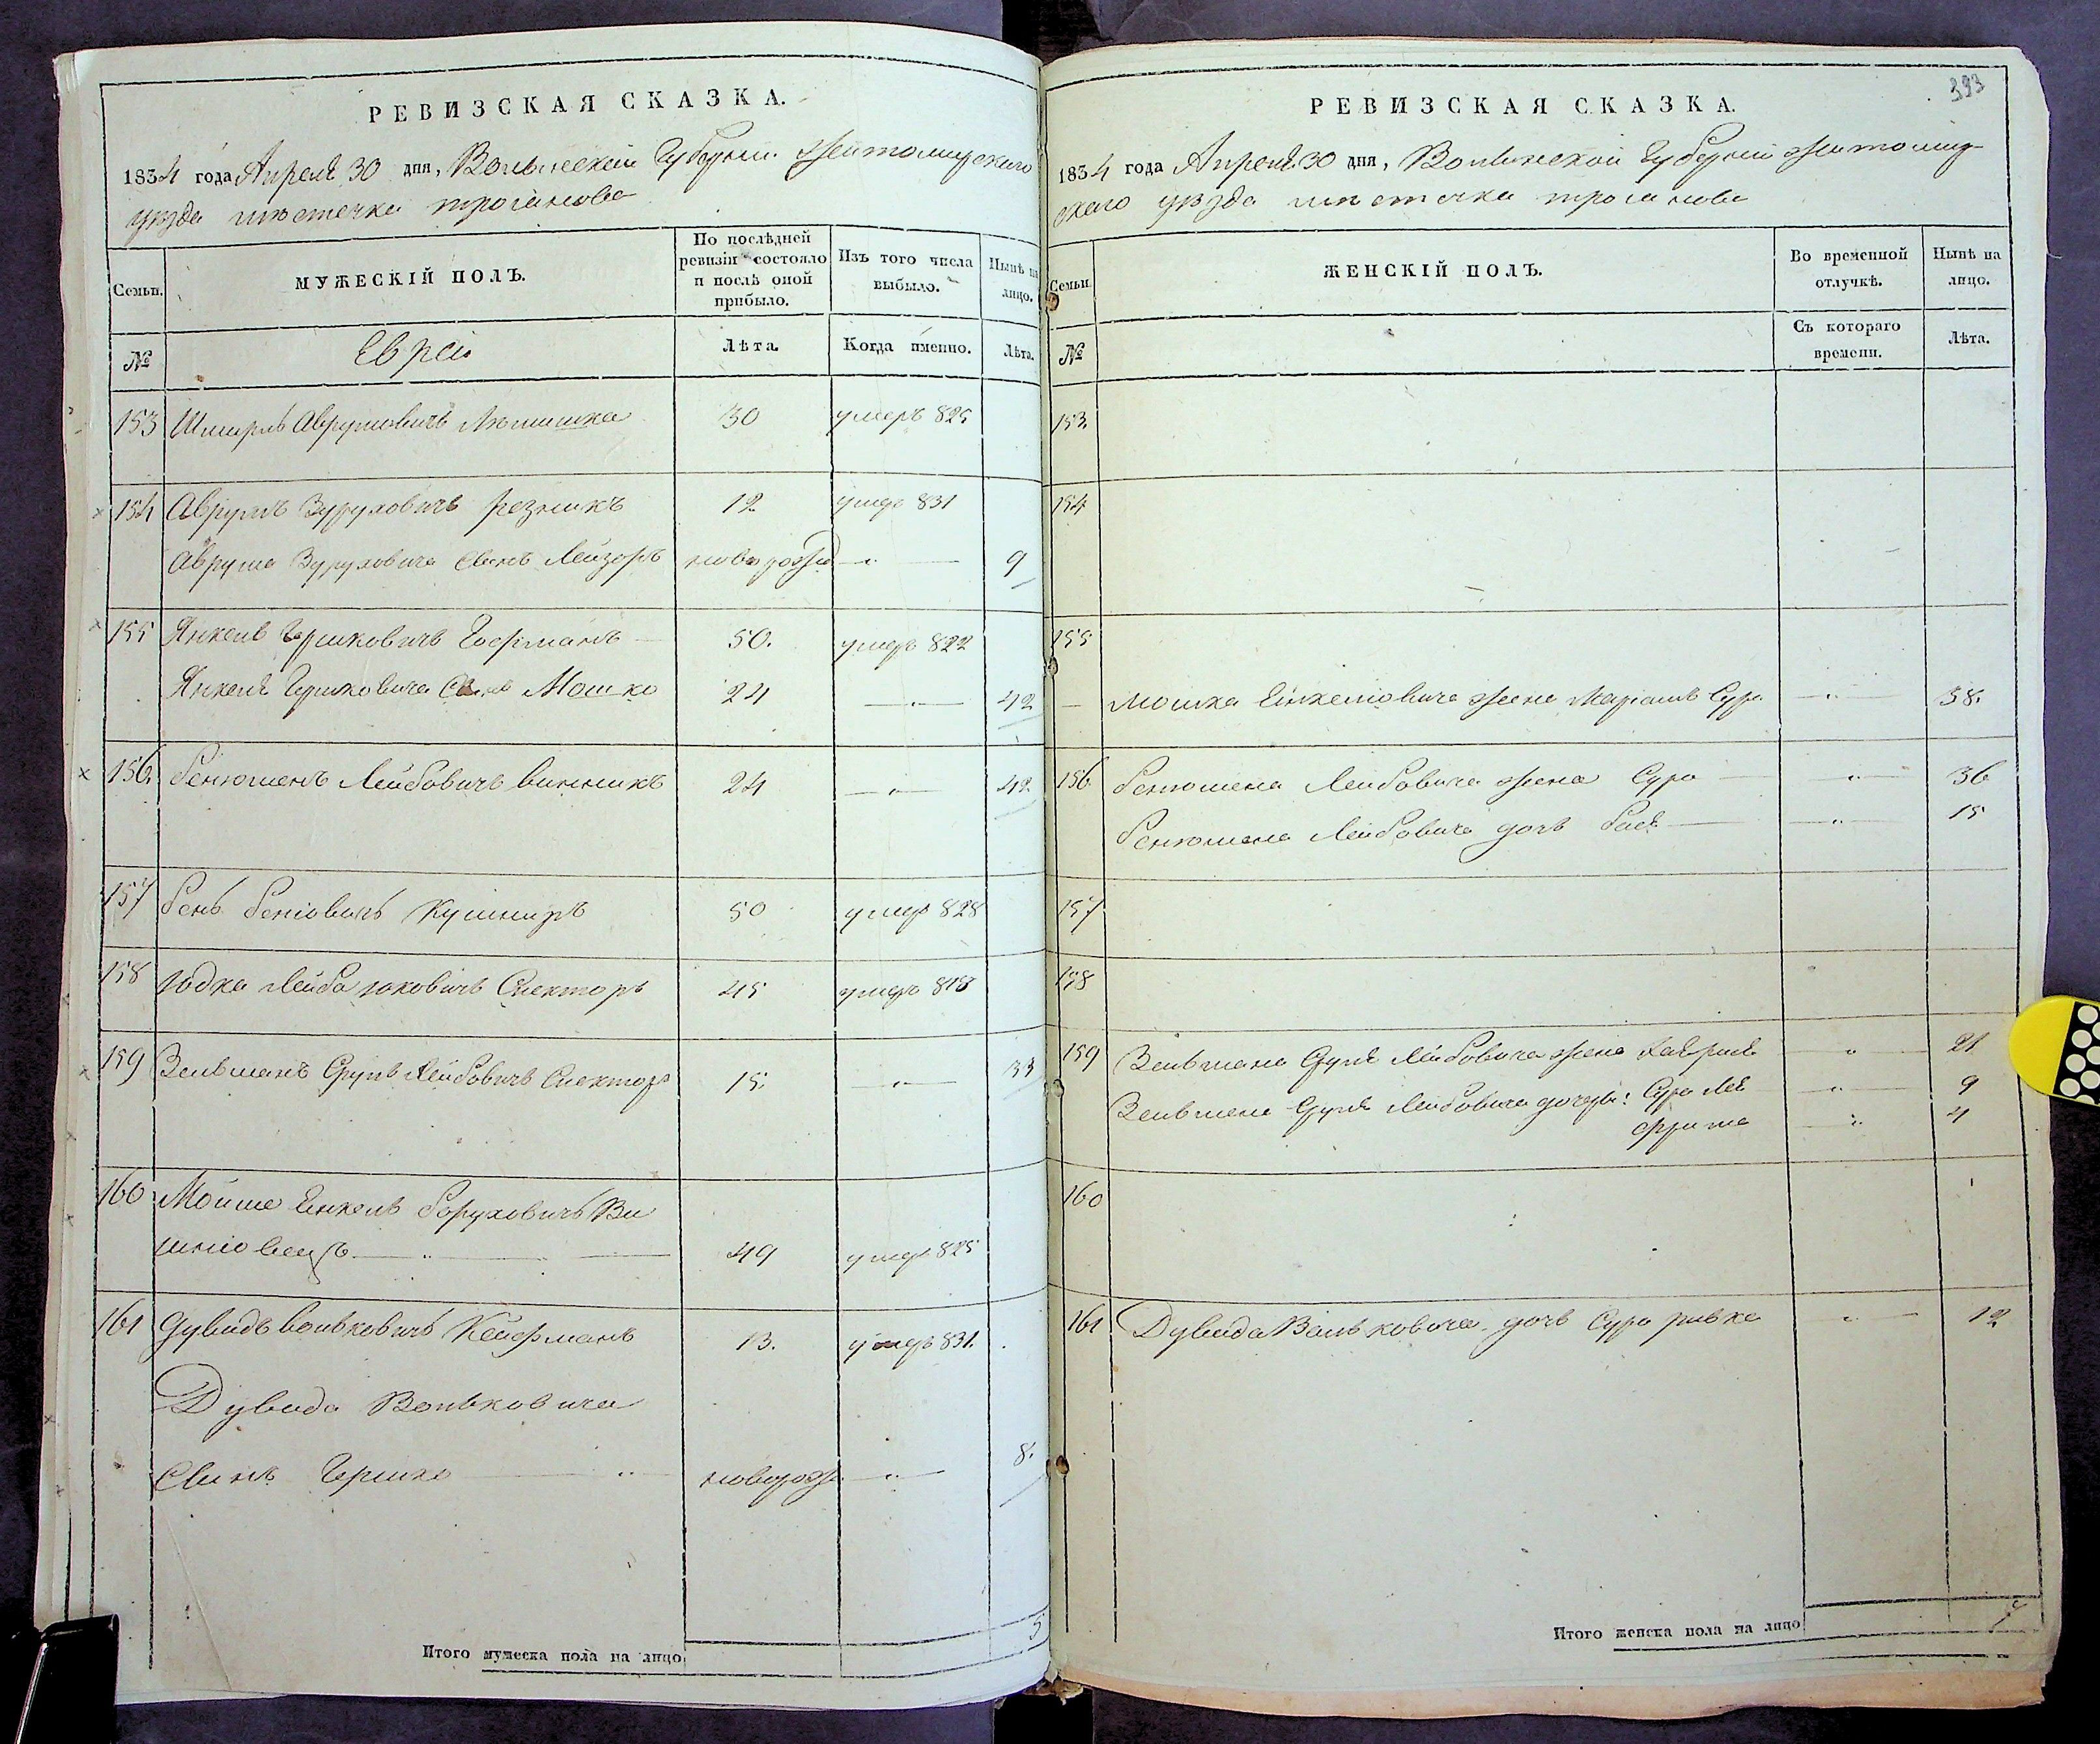 РЕВИЗСКАЯ СКАЗКА.
1834 года Апреля 30 дня, Волынской Губернии Житомирского
уезда местечка троянова
Семьи.
МУЖЕСКІЙ ПОЛЪ.
По послѣдней ревизіи состояло и послѣ оной прибыло.
Изъ того числа выбыло.
Нынѣ на лицо.
№
Евреи
Лѣта.
Когда именно.
Лѣта.
153 Аврумовичъ 30 умеръ 825
154 Аврумъ Зуруховичъ резникъ 12 умеръ 831
Аврума Зуруховича Сынъ Лейзоръ новорожд 9
155 Янкель Гершковичъ Гофманъ 50. умеръ 822
Янкеля Гершковича Сынъ Мошко 24 42
156. Бенюменъ Лейбовичъ винникъ 24 42
157 Бень Беніовичъ Кушниръ 50 умер 828
158 Юдка Лейба Спекторъ 45 умеръ 818
159 Зельманъ Сруль Лейбовичъ Спекторъ 15. 33
160 Мойше Енкель Боруховичъ Ви
шніовецъ 49 умеръ 825
161 Дувидъ вольковичъ Койфманъ 13. умеръ 831.
Дувида Вольковича
Сынъ Гершко новорож 8.
Итого мужеска пола на лицо 5
393
РЕВИЗСКАЯ СКАЗКА.
1834 года Апреля 30 дня, Волынской Губерніи Житомир
скаго уезда местечка троянова
Семьи.
ЖЕНСКІЙ ПОЛЪ.
Во временной отлучкѣ.
Нынѣ на лицо.
№
Съ котораго времени.
Лѣта.
153
154
155
Мошка Енкелювича жена Маріамъ Сура 38.
156 Бенюмена Лейбовича жена Сура 36
Бенюмена Лейбовича дочь Бася 15
157
158
159 Зельмана Сруля Лейбовича жена 21
Зельмана Сруля Лейбовича дочеры: Сура Лея 9
Фрима 4
160
161 Дувида Вольковича дочь Сура ривка 12
Итого женска пола на лицо 7